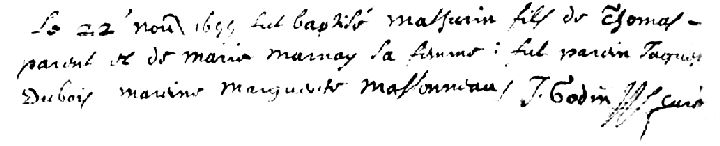 Le 22e nou 1699 fut baptisé Mathurin fils de Thomas
parent et de marie marnay sa femme : fut parein Jaques
Dubois mareine marguerite massonneau J. Godin curé